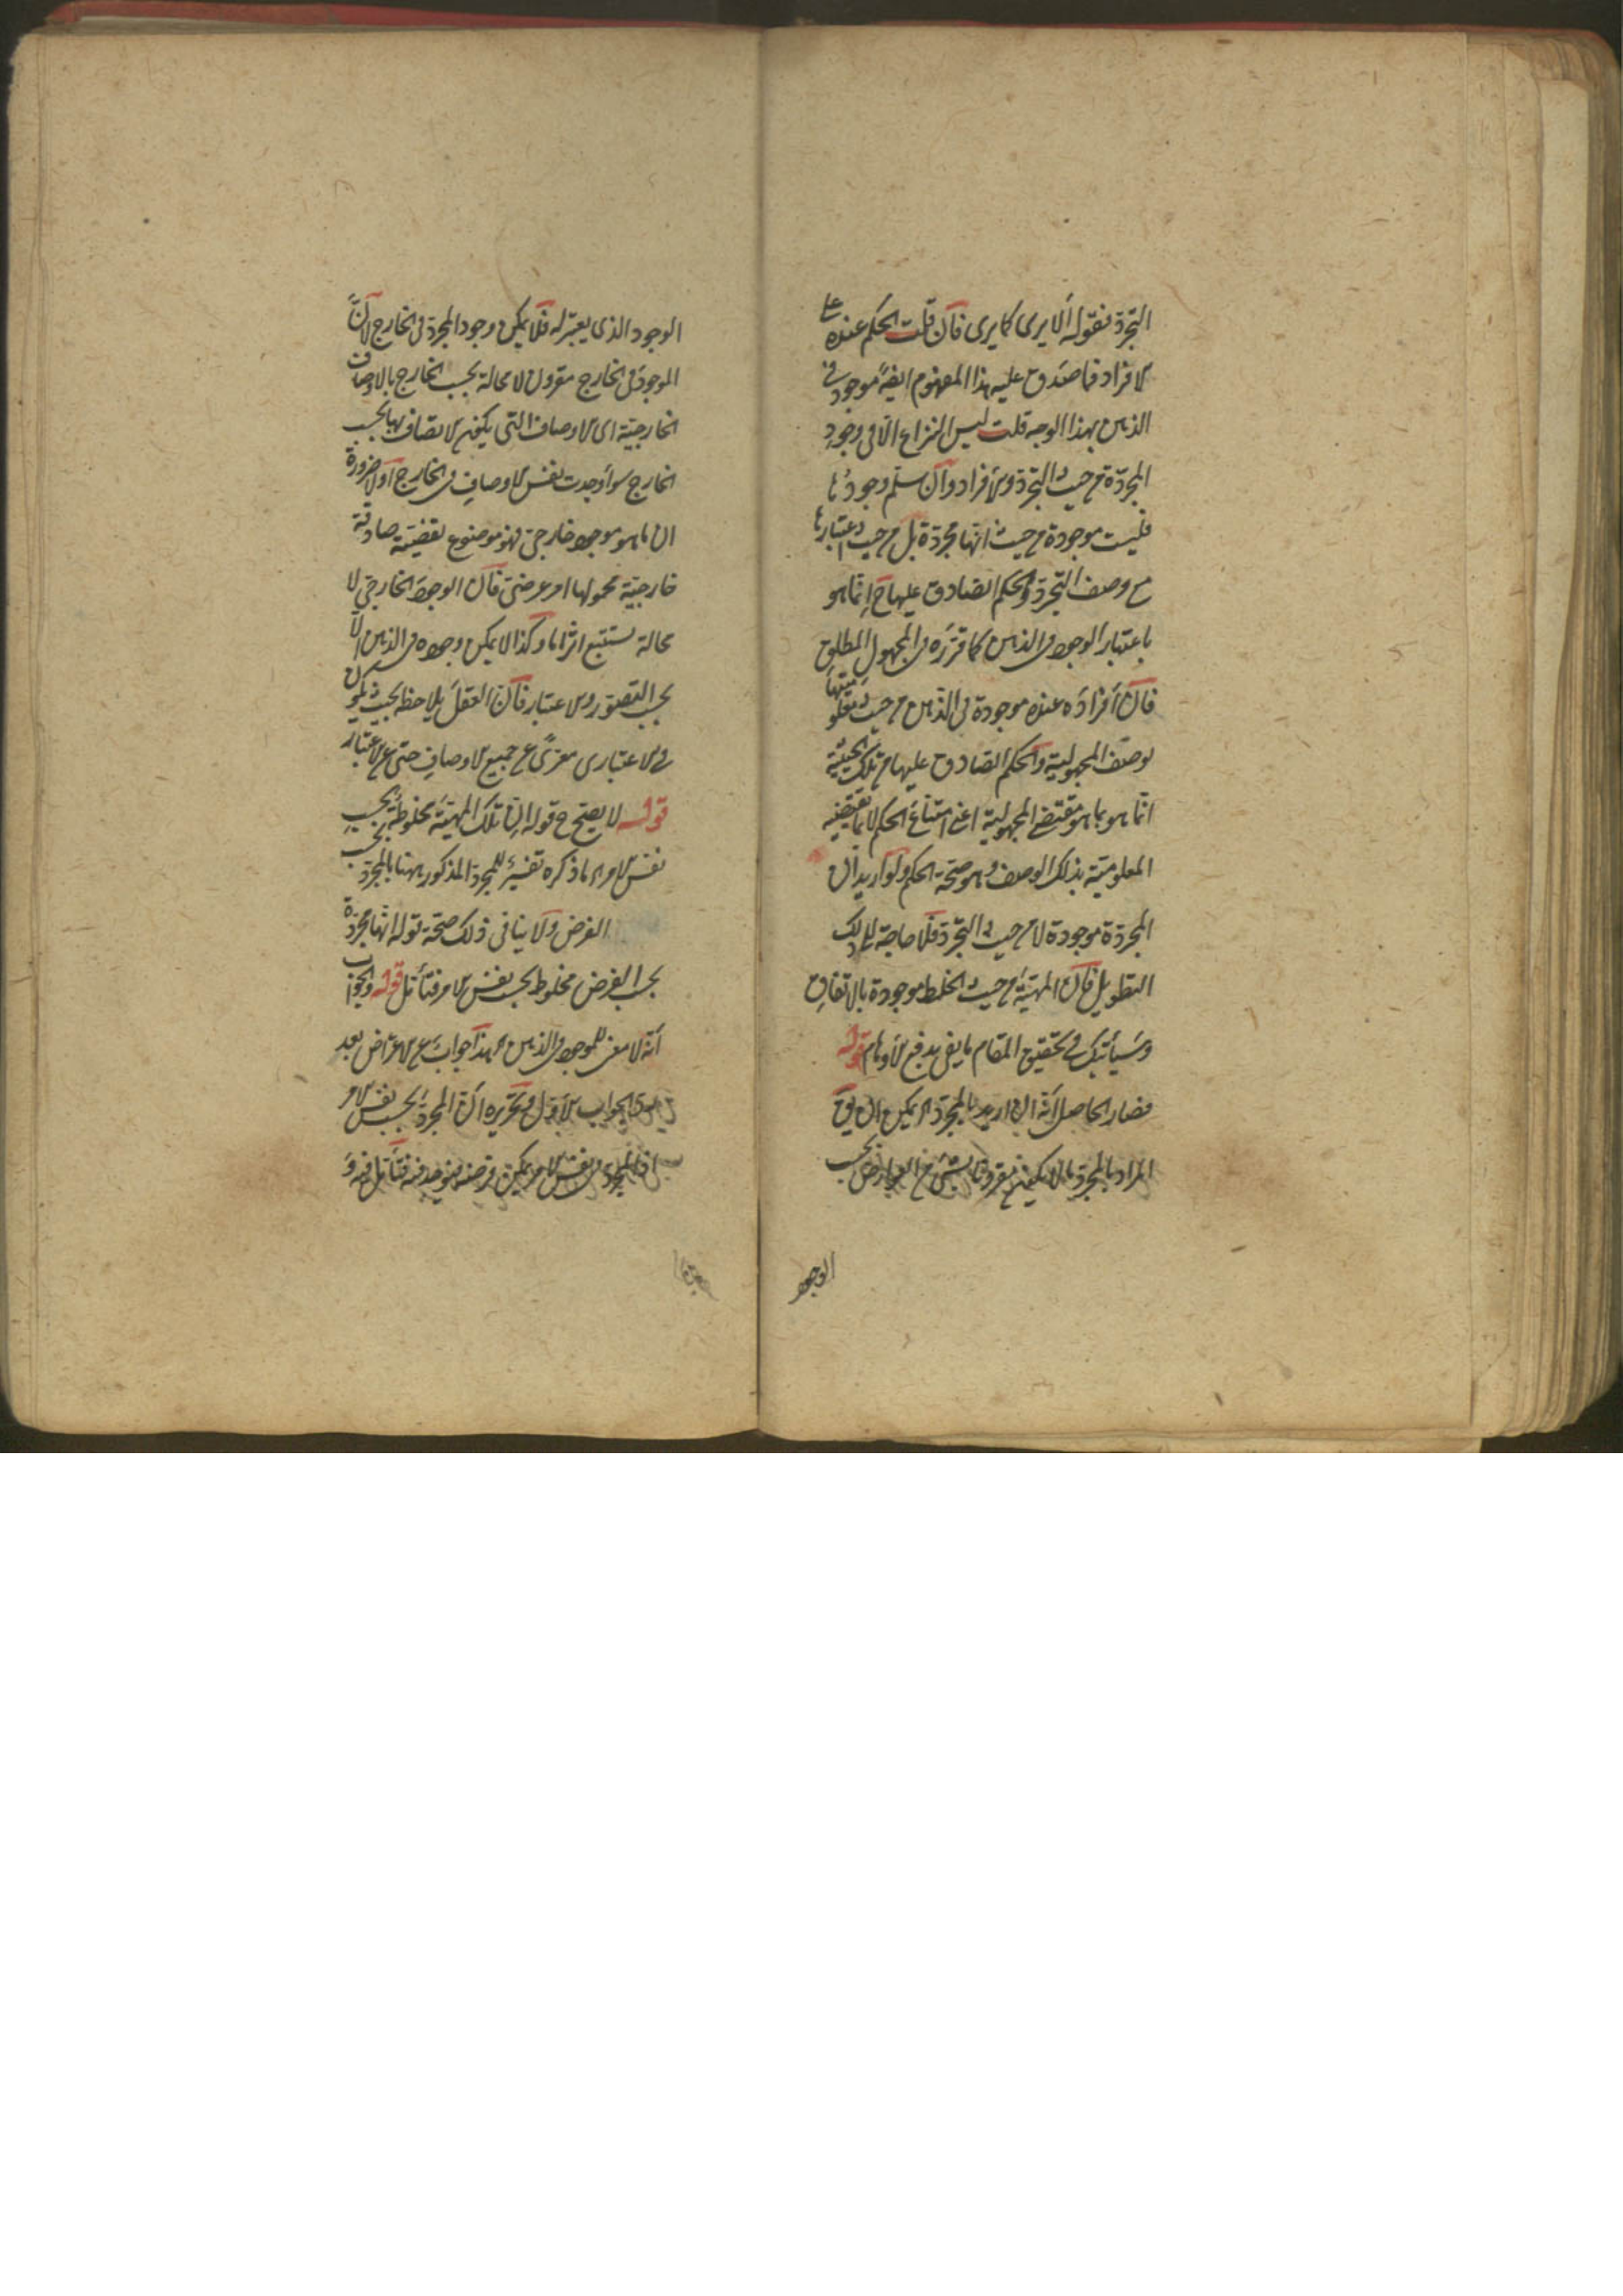 التجرد فقوله ألا يرى كما يرى فان قلت الحكم عنده على
الافراد فما صدق عليه هذا المفهوم ايضً موجود في
الذهن بهذا الوجه قلت ليس النزاع الا فى وجود
المجردة من حيث التجرد والأفراد وان سلم وجودُها
فليست موجودة من حيث انها مجردة بل من حيث اعتبارها
مع وصف التجرد والحكم الصادق عليها ح إنما هو
باعتبار الوجود فى الذهن كما قرّره فى المجهول المطلق
فان أفرادَه عنده موجودة فى الذهن من حيث معلوميّتها
بوصف المجهولية والحكم الصادق عليها من تلك الحيثية
انما هو بما هو مقتضى المجهولية اعنى امتناعَ الحكم لا بما تقتضيه
المعلومية بذلك الوصف وهو صحة الحكم ولو أريد أن
المجردة موجودة لا من حيث التجرد فلا حاجة الى ذلك
التطويل فان المهيّة من حيث الخلط موجودة بالاتفاقِ
وسيأتيك فى تحقيق المقام ما يفى بدفع الأوهام قوله
فصار الحاصل أنه ان اريد بالمجرد الى يمكن ان يق
المراد بالمجرد ما لا يكون مقرونا بشئ من العوارض بحسب
الوجود
الوجود الذى يعتبر له فلا يمكن وجود المجرد فى الخارج لأنّ
الموجود فى الخارج مقرون لا محالة بحسب الخارج بالاوصاف
الخارجية اى الاوصاف التى يكون الاتصاف بها بحسب
الخارج سواء وجدت نفس الاوصافِ فى الخارج أو لا ضرورة
ان ما هو موجود خارجى فهو موضوع لقضية صادقة
خارجية محمولها امر عرضى فان الوجود الخارجى لا
محالة يستتبع اثرا ما وكذا لا يمكن وجوده فى الذهن الّا
بحسب التصور والاعتبار فان العقل يلاحظه بحيث يكون
فى الاعتبارى معرىً عن جميع الاوصافِ حتى عن الاعتبار
قوله لا يصح ح قوله ان تلك المهيّة مخلوطة بحسب
نفس الامر الى ما ذكره تفسيرٌ للمجرد المذكور ههنا بالمجرد بحسب
الفرض ولا ينافى ذلك صحة قوله انها مجردة
بحسب الفرض مخلوط بحسب نفس الامر فتأمّل قوله والجواب
أنه لا معنى للموجود فى الذهن الى هذا جوابٌ عن الاعتراض بعد
الجواب الأول وتحريره أن المجرد بحسب نفس الامر
نفس الامر يمكن فرضه فيوجد فيه فتأمل فيه وَ